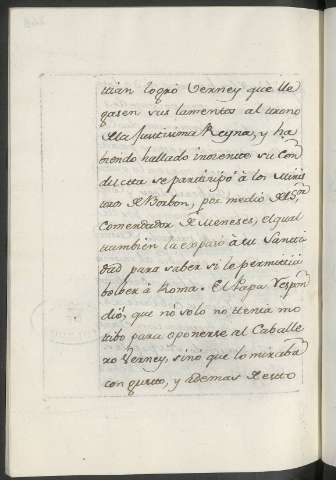 uian logró Verney que lle
gasen sus lamentos al trono
de la Justisima Reyna, y ha
biendo hallado inocente su Con
ducta se participó à los Minis
tros de Borbon, por medio del Sor
Comendador de Meneses, el qual
tambien la expuso à su Santi
dad para saber si le permitia
bolver à Roma. El Papa respon
dió, que no solo no tenia mo
tibo para oponerse al Caballe
ro Verney, sinó que lo miraba
con gusto, y ademas de esto